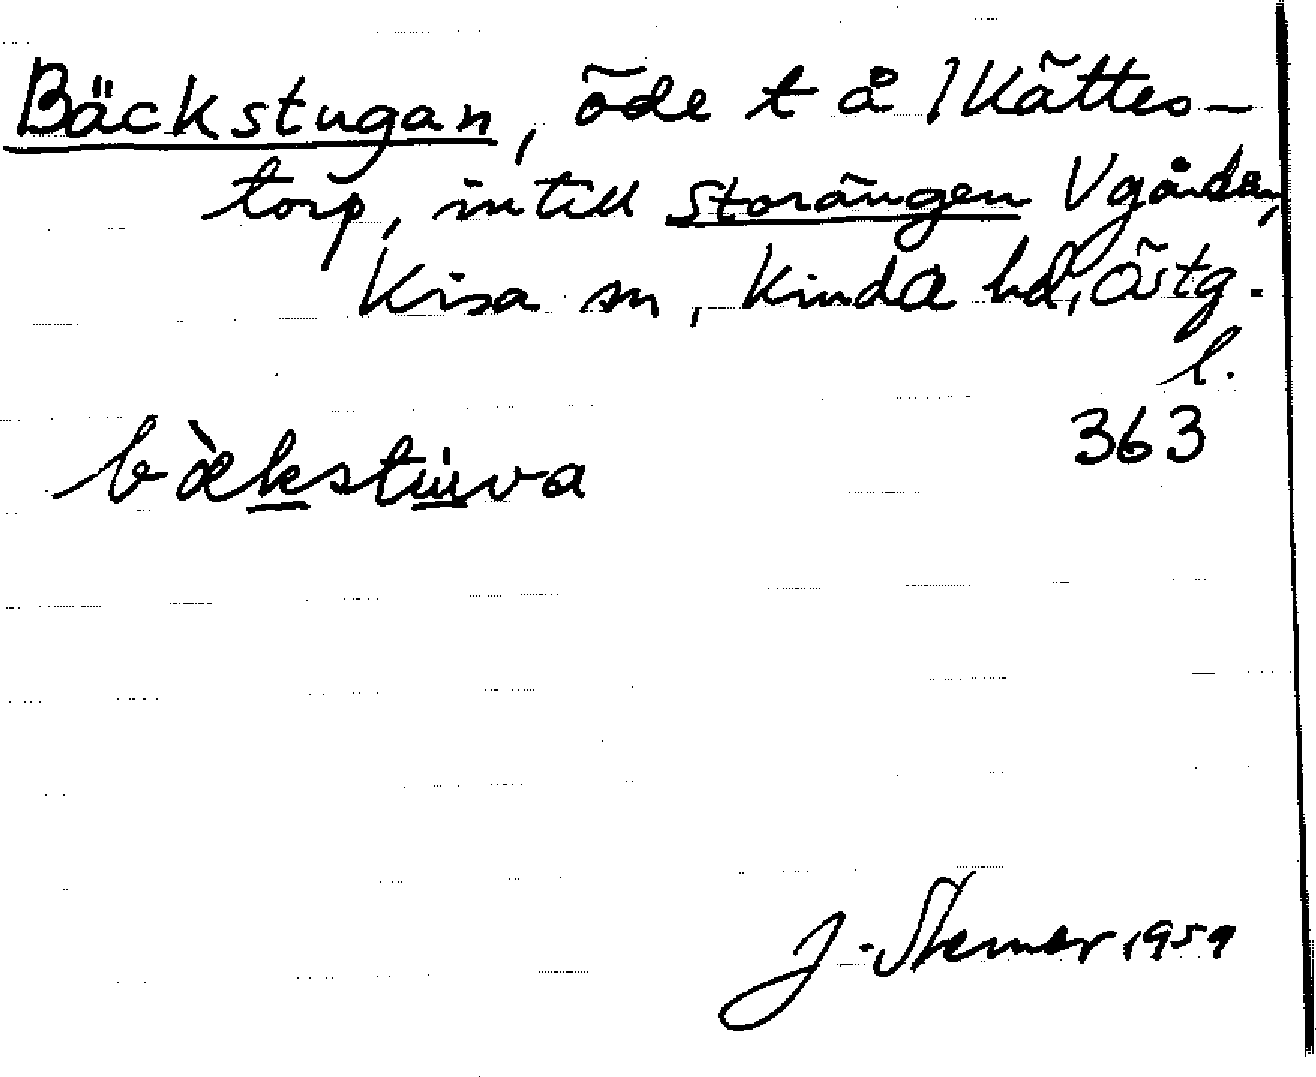 Bäckstugan, öde t å 1 Kättes-
torp, intill Storängen Vgården,
Kisa sn, Kinda hd, Östg.
l.
363
bækstuva
J. 1959